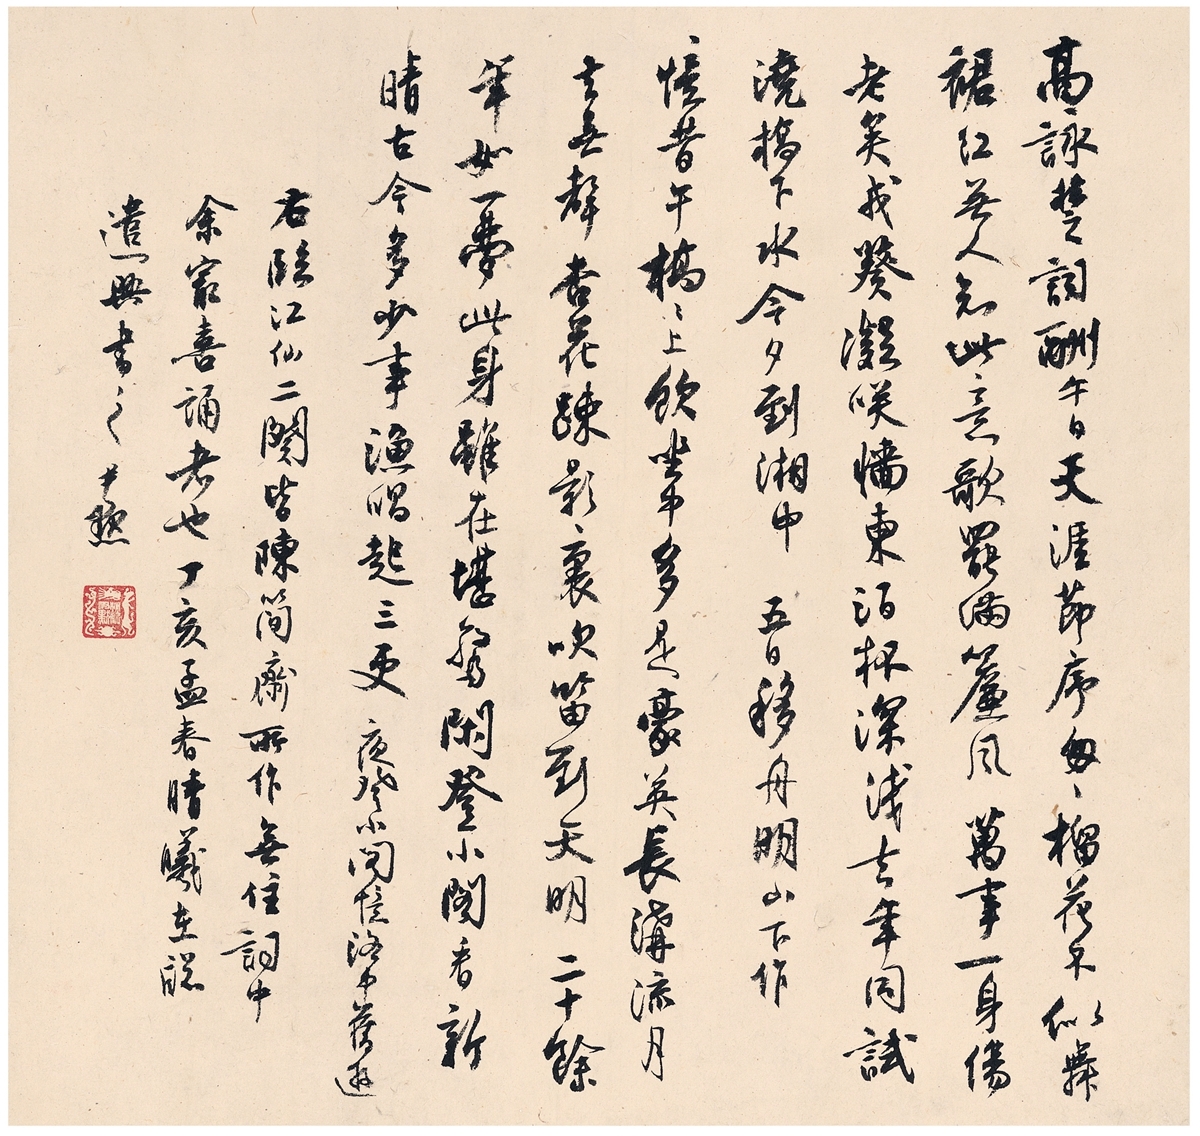 高詠楚詞酬午日天涯節序匆〻榴花不似舞
裙紅無人知此意歌罷滿簾風 萬事一身傷
老矣戎葵凝咲牆東酒杯深淺去年同試
澆橋下水今夕到湘中 五日移舟明山下作
憶昔午橋〻上飲坐中多是豪英長溝流月
去無聲杏花疎影裏吹笛到天明 二十餘
年如一夢此身雖在堪驚閑登小閣看新
晴古今多少事漁唱起三更 夜登小閣憶洛中舊遊
右臨江仙二闋皆陳簡齋所作無住詞中
余最喜誦者也丁亥孟春晴曦在牖
遣興書之 尹默